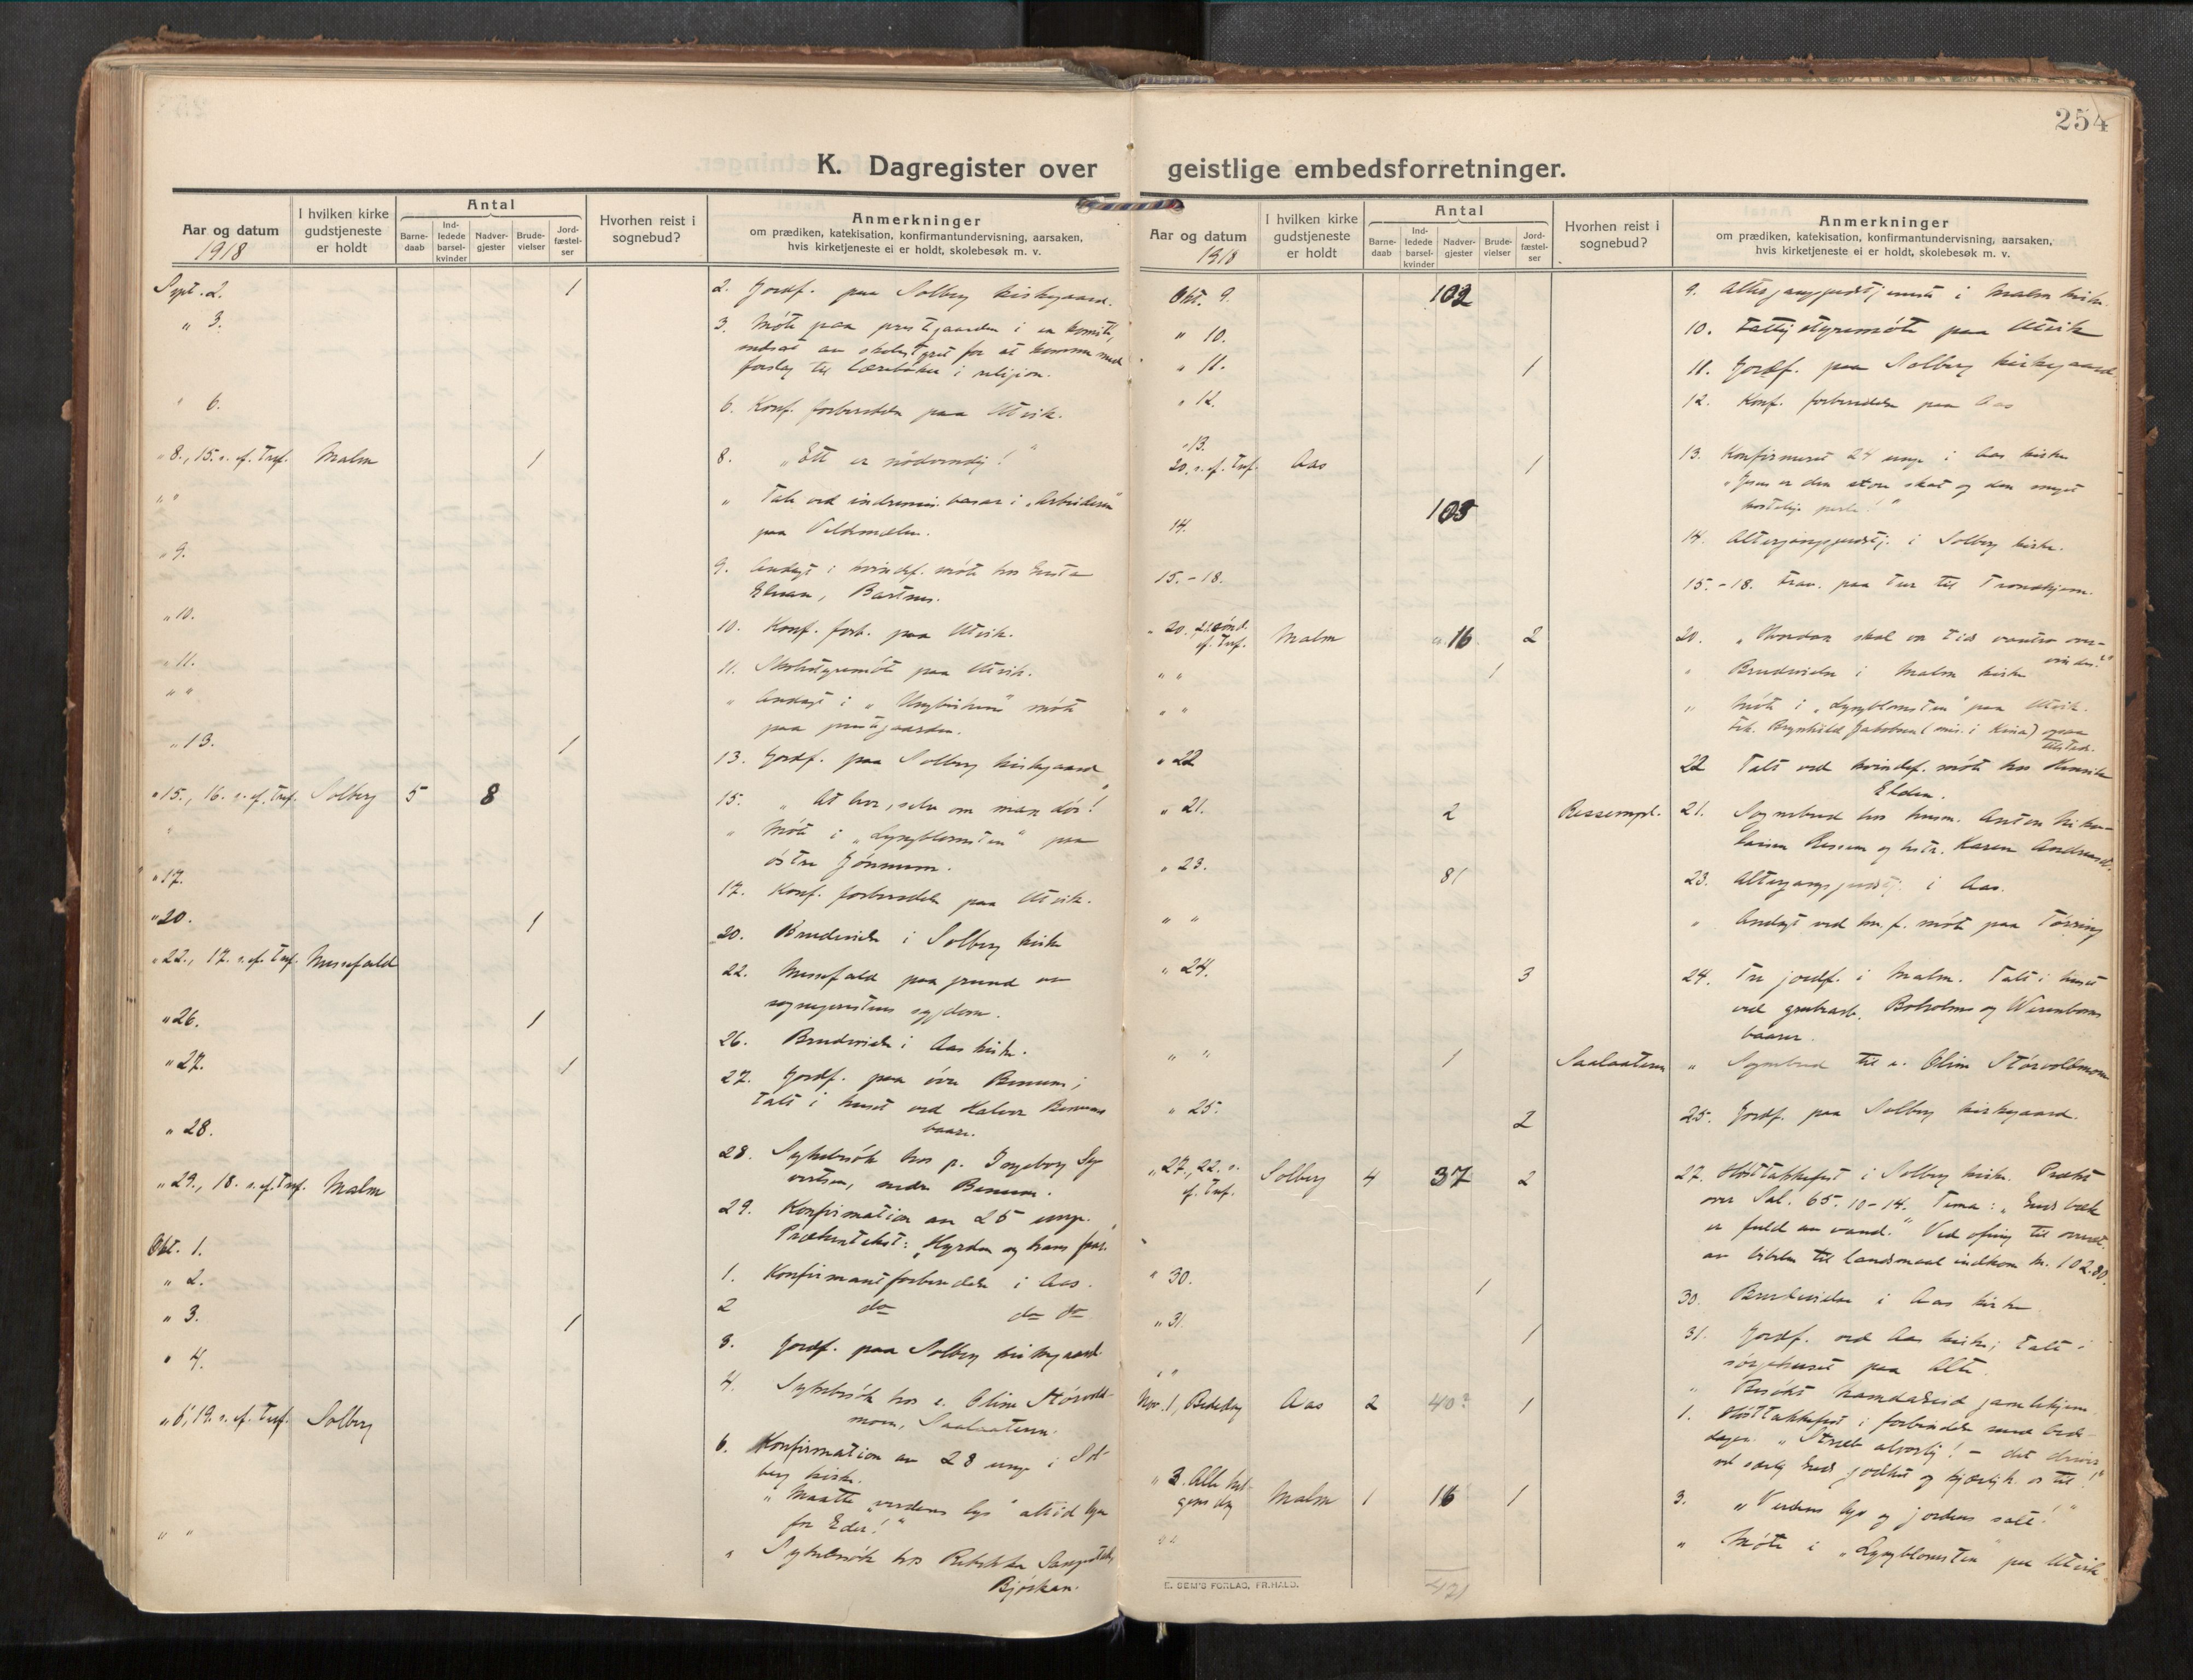 254
K. Dagregister over geistlige embedsforretninger.
Aar og datum
1918
I hvilken kirke gudstjeneste er holdt
Antal
Barne-daab
Ind-ledede barsel-kvinder
Nadver-gjester
Brude-vielser
Jord-fæstel-ser
Hvorhen reist i sognebud?
Anmerkninger
om prædiken, katekisation, konfirmantundervisning, aarsaken,
hvis kirketjeneste ei er holdt, skolebesøk m. v.
Sept. 2. 1 2. Jordf. paa Solberg kirkegaard.
" 3. 3. Møte paa prestgaarden i en komité,
nedsat av skolestyret for at komme med
forslag til lærebøker i religion.
" 6. 6. Konf. forberedelse paa Utvik.
" 8., 15. s. ef. Tref. Malm 1 8. "Ett er nødvendig!"
" " " Tale ved indremis. basar i "Arbeideren"
paa
" 9. 9. Andagt i kvindef. møte hos
Bartnes.
" 10. 10. Konf. forb. paa Utvik.
" 11. 11. Skolestyremøte paa Utvik.
" " " Andagt i "Ungbirken" møte
paa prestgaarden.
" 13. 1 13. Jordf. paa Solberg kirkegaard
" 15., 16. s. ef. Tref. Solberg 5 8 15. "At leve, selv om man dør!"
" " Møte i "Lyngblomsten" paa
østre
" 17. 17. Konf. forberedelse paa Utvik.
" 20. 1 20. Brudevielse i Solberg kirke
" 22., 17. s. ef. Tref. Messefald 22. Messefald paa grund av
sogneprestens sygdom.
" 26. 1 26. Brudevielse i Aas kirke.
" 27. 1 27. Jordf. paa øvre Benum;
talt i huset ved Halvor Benums
baare.
" 28. 28. Sykebesøk hos p. Ingeborg Sy-
vertsen, nedre Benum.
" 29., 18. s. ef. Tref. Malm 29. Konfirmation av 25 unge.
Prækentekst: "Hyrden og hans faar."
Okt. 1. 1. Konfirmantforberedelse i Aas.
" 2. 2 do do do
" 3. 1 3. Jordf. paa Solberg kirkegaard.
" 4. 4. Sykebesøk hos e. Oline Størvold-
moen, Saalaateren.
" 6., 19. s. ef. Tref. Solberg 6. Konfirmation av 28 unge i Sol-
berg kirke.
" Maatte "verdens lys" altid lyse
for Eder!"
" " " Sykebesøk hos Rebekka
Bjørkan.
Aar og datum
1918
I hvilken kirke gudstjeneste er holdt
Antal
Barne-daab
Ind-ledede barsel-kvinder
Nadver-gjester
Brude-vielser
Jord-fæstel-ser
Hvorhen reist i sognebud?
Anmerkninger
om prædiken, katekisation, konfirmantundervisning, aarsaken,
hvis kirketjeneste ei er holdt, skolebesøk m. v.
Okt. 9. 102 9. Altergangsgudstjeneste i Malm kirke.
" 10. 10. Fattigstyremøte paa Utvik
" 11. 1 11. Jordf. paa Solberg kirkegaard.
" 12. 12. Konf. forberedelse paa Aas
" 13. 20. s. ef. Tref. Aas 1 13. Konfirmeret 24 unge i Aas kirke
"Jesus er den store skat og den meget
kostelige perle!"
14. 103 14. Altergangsgudstj. i Solberg kirke.
15. - 18. 15. - 18. Frav. paa tur til Trondhjem.
" 20., 21. sønd. ef. Tref. Malm 16 2 20. "Hvordan skal en tids vantro over-
vindes?"
" " 1 " Brudevielse i Malm kirke
" " " Møte i "Lyngblomsten" paa Utvik.
Frk. Brynhild Jakobsen (mis. i Kina)
tilsted.
" 22 22 Talt ved kvindef. møte hos Henrik
Elden.
" 21. 2 Ressempl. 21. Sognebud hos husm. Anton
Ressem og hstr. Karen
" 23. 81 23. Altergangsgudstj. i Aas.
" " " Andagt ved kv. f. møte paa Tørring
" 24. 3 24. Tre jordf. i Malm. Talt i huset
ved grubearb. Boholms og
baarer.
" " 1 Saalaateren " Sognebud til e. Oline Størvoldmoen
" 25. 2 25. Jordf. paa Solberg kirkegaard.
" 27., 22. s. ef. Tref. Solberg 4 37 2 27. Høsttakkefest i Solberg kirke. Præket
over Sal. 65. 10-14. Tema: "Guds bæk
er fuld av vand." Ved ofring til overs.
av bibelen til landsmaal indkom kr. 102.80.
" 30. 1 30. Brudevielse i Aas kirke.
" 31. 1 31. Jordf. ved Aas kirke; talt i
sørgehuset paa
" " " Besøkt Namdalseid gamlehjem.
Nov. 1, Bededag Aas 2 40? 1 1. Høsttakkefest i forbindelse med bede-
dagen. "Stræb alvorlig! - det driver
os særlig Guds godhet og kjærligh. os til!"
" 3. Alle hel-gens dag Malm 1 16 1 3. "Verdens lys og jordens salt!"
" " " Møte i "Lyngblomsten" paa Utvik.
E. SEM'S FORLAG, FR.HALD.
421